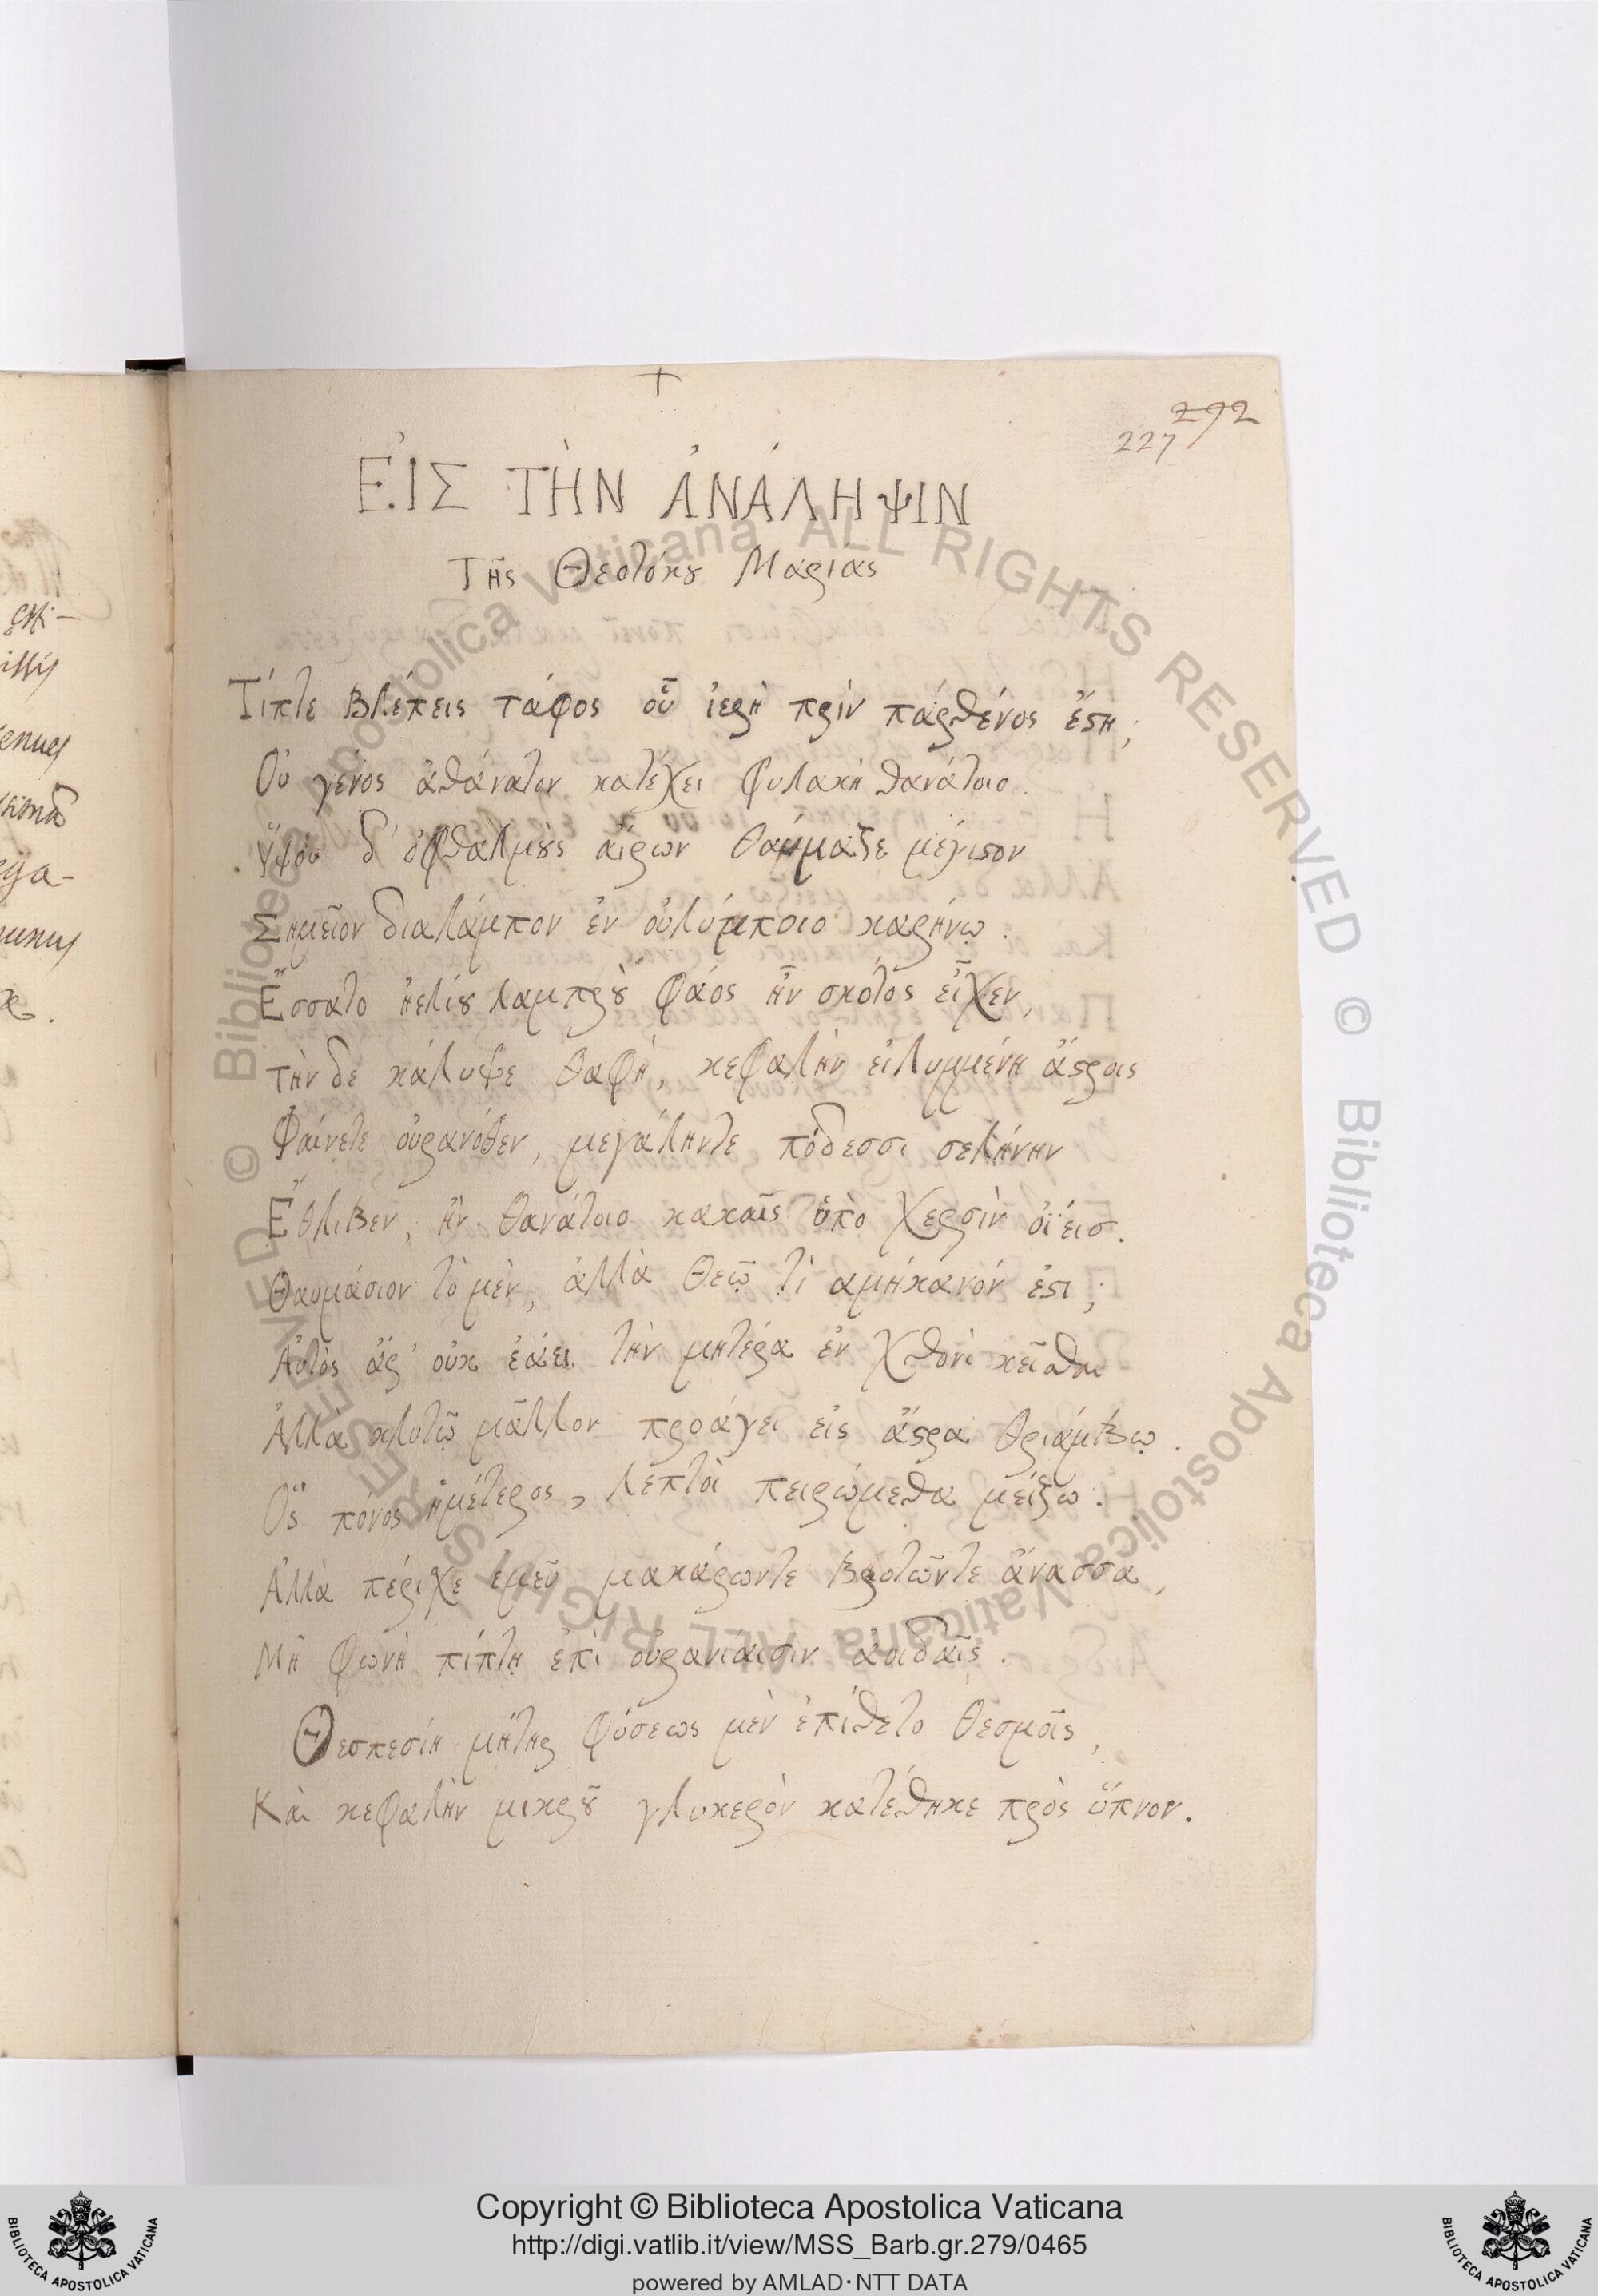 +
292
227
ΕἸΣ ΤῊΝ ἈΝΆΛΗΨΙΝ
Τῆς Θεοτόκȣ Μαρίας
Τίπτε βλέπεις τάφος οὗ ἱερὴ πρὶν πάρθένος ἔϛη;
Οὐ γένος ἀθάνατον κατέχει φυλακὴ θανάτοιο.
Ὑψόυ δ' ὀφθαλμȣ̀ς αἴρων θαύμαζε μέγιϛον
Σημεῖον διαλάμπον ἐν οὐλύμποιο καρήνῳ.
Ἕσσατο ἠελίȣ λαμπρȣ̀ φάος ἣν σκότος εἶχεν,
τὴν δὲ κάλυψε θαφὴ, κεφαλὴν εἰλυμμένη ἄϛροις
Φαίνετε οὐρανόθεν, μεγάληντε πόδεσσι σελήνην
Ἔθλιβεν, ἣν θανάτοιο κακαῖς ὑπὸ χερσὶν οἴεισ.
Θαυμάσιον τὸ μὲν, ἀλλὰ Θεῷ τὶ αμήχανόν ἐϛι;
Αὐτὸς ἄρ' οὐκ ἐάει τὴν μητέρα ἐν χθονὶ κεῖσθαι
Ἀλλὰ κλυτῷ μᾶλλον προάγει εἰς ἄϛρα θριάμβῳ.
Οὓς πόνος ἡμέτερος, λεπτὸι πειρώμεθα μείζω.
Ἀλλὰ πέριχε ἐμεῦ μακάρωντε βροτῶντε ἄνασσα,
Μὴ φωνὴ πίπτῃ ἐπὶ οὐρανιάισιν ἀοιδαῖς.
Θεσπεσίη μήτης φύσεως μὲν ἐπίθετο θεσμοῖς,
Κὰι κεφαλὴν μικρȣ͂ γλυκερὸν κατέθηκε πρὸς ὕπνον.
Copyright © Biblioteca Apostolica Vaticana
http://digi.vatlib.it/view/MSS_Barb.gr.279/0465
powered by AMLAD·NTT DATA
BIBLIOTECA APOSTOLICA VATICANA
BIBLIOTECA APOSTOLICA VATICANA